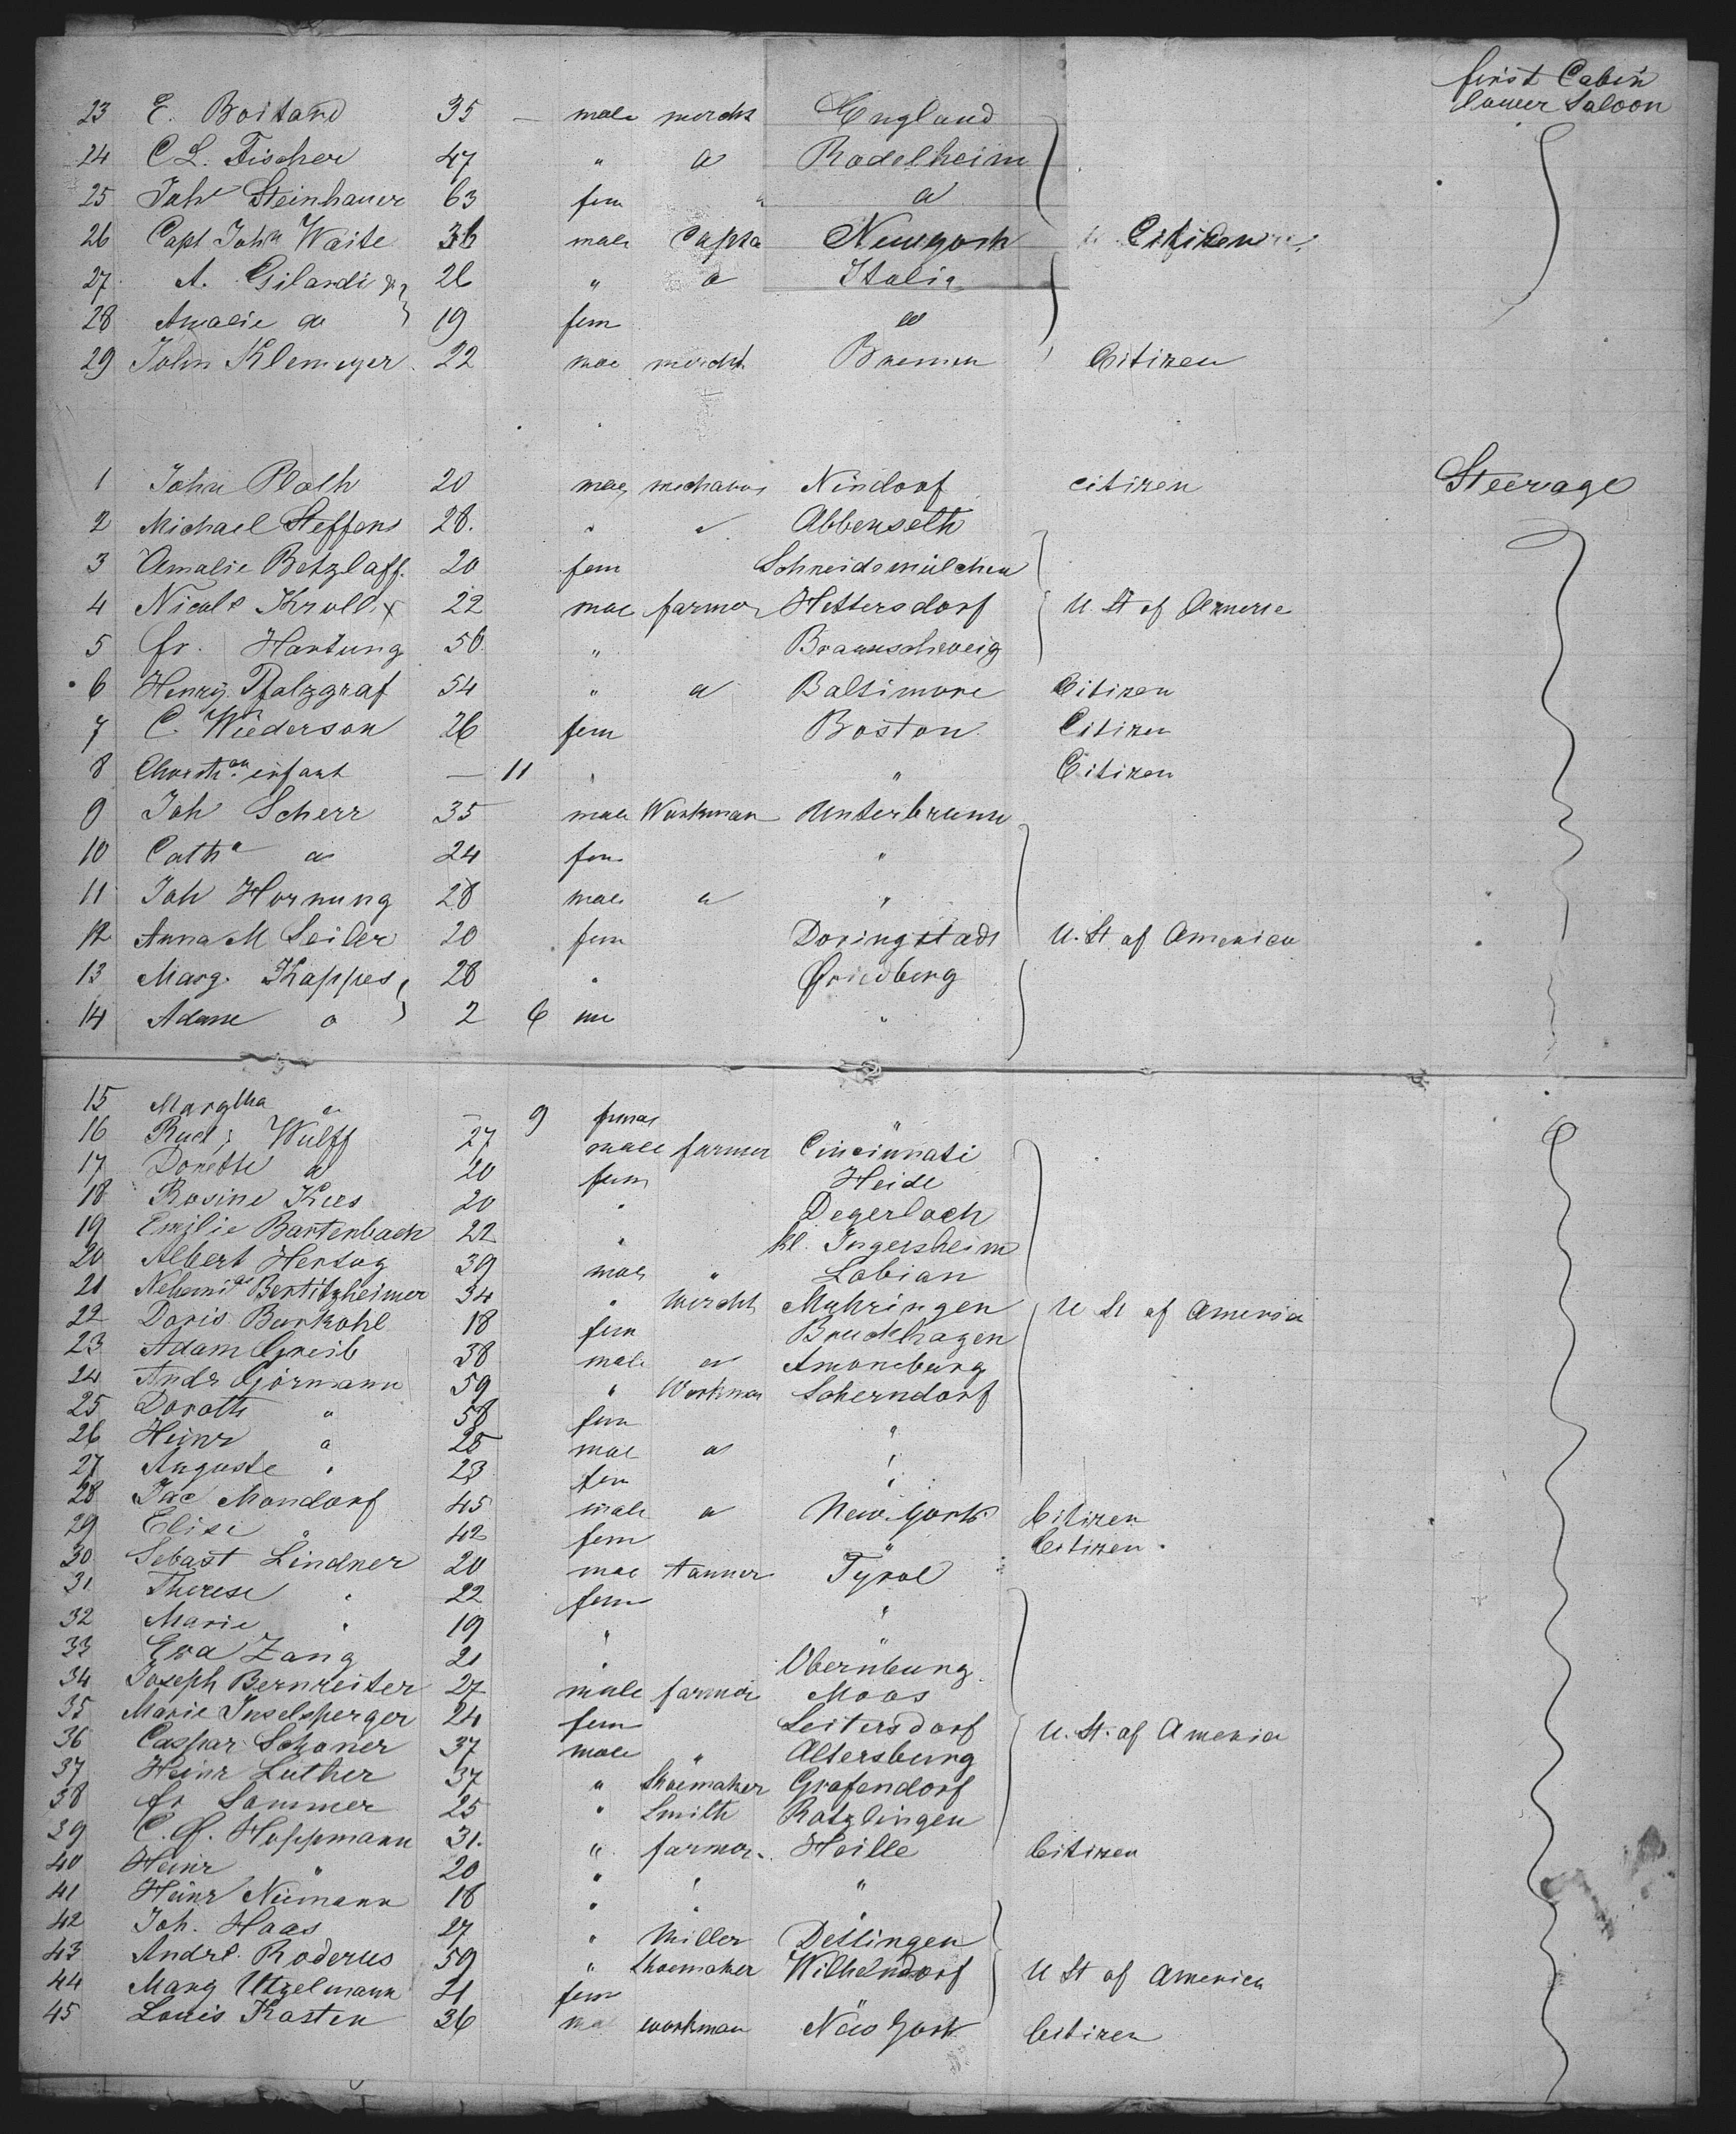 first Cabin
lower Saloon
23 E. Boitard 35 — male mercht England
24 C L. Fischer 47 " a Rodelheim
25 Joh Steinhauer 63 fem " a
26 Capt John Waite 36 male Capta Newyork Citizen
27 A. Gilardi & 26 " a Italia
28 Amalie do 19 fem a
29 John Klemeyer 22 mae mercht Bremen Citizen
Steerage
1 John Plath 20 mae mechanic Nindorf citizen
2 Michael Steffens 28. " " Abbenseth
3 Amalie Betzlaff 20 fem Schneidemülchen
4 Nicols Kroll x 22 mae farmer Hettersdorf U. St of America
5 Fr. Hartung 56 " Braunschweig
6 Henry Pfalzgraf 54 " a Baltimore Citizen
7 C. Wiederson 26 fem Boston Citizen
8 infant — 11 " " Citizen
9 Joh Scherr 35 male Workman Unterbrunn
10 Catha a 24 fem "
11 Joh Hornung 28 male a "
12 Anna M Seiler 20 fem Doringstadt U. St of America
13 Marg. Kappes 28 " Friedberg
14 Adam a 2 6 "
15 Margtha a — 9 "
16 Rud; Wulff 27 male farmer Cincinnati
17 Dorethe a 20 fem Heide
18 Rosine Kees 20 " Degerloch
19 Emilie Bartenbach 22 " kl. Ingersheim
20 Albert Hertog 39 male " Labian
21 Nehemias Bertitzheimer 34 " Mercht Muhringen U St of America
22 Doris Barkohl 18 fem Bruchhagen
23 Adam Greib 38 male a Amoneburg
24 Andr Görmann 59 " Workman Scherndorf
25 Doroth " 58 fem "
26 Heinr a 25 mae a "
27 Auguste " 23 fem "
28 Jac Mondorf 45 male a New-York Citizen
29 Elise " 42 fem " Citizen
30 Sebast Lindner 20 mae tanner Tyrol
31 Therese " 22 fem "
32 Marie " 19 " "
33 Eva Zang 21 " Obernburg
34 Joseph Bernreiter 27 male farmer Moos
35 Marie Inselsperger 24 fem Leitersdorf U. St. of America
36 Caspar Schoner 37 male " Altersburg
37 Heinr Luther 37 " Shoemaker Grafendorf
38 Fr Sommer 25 " Smith Ratzlingen
39 C. F. Hoppmann 31. " farmer Heille Citizen
40 Heinr " 20 " " "
41 Heinr Niemann 18 " " "
42 Joh. Haas 27 " Miller Dettingen
43 Andre. Roderus 59 " Shoemaker Wilhelmdorf U St of America
44 Marg Utzelmann 21 fem "
45 Louis Kasten 36 ma workman New York Citizen